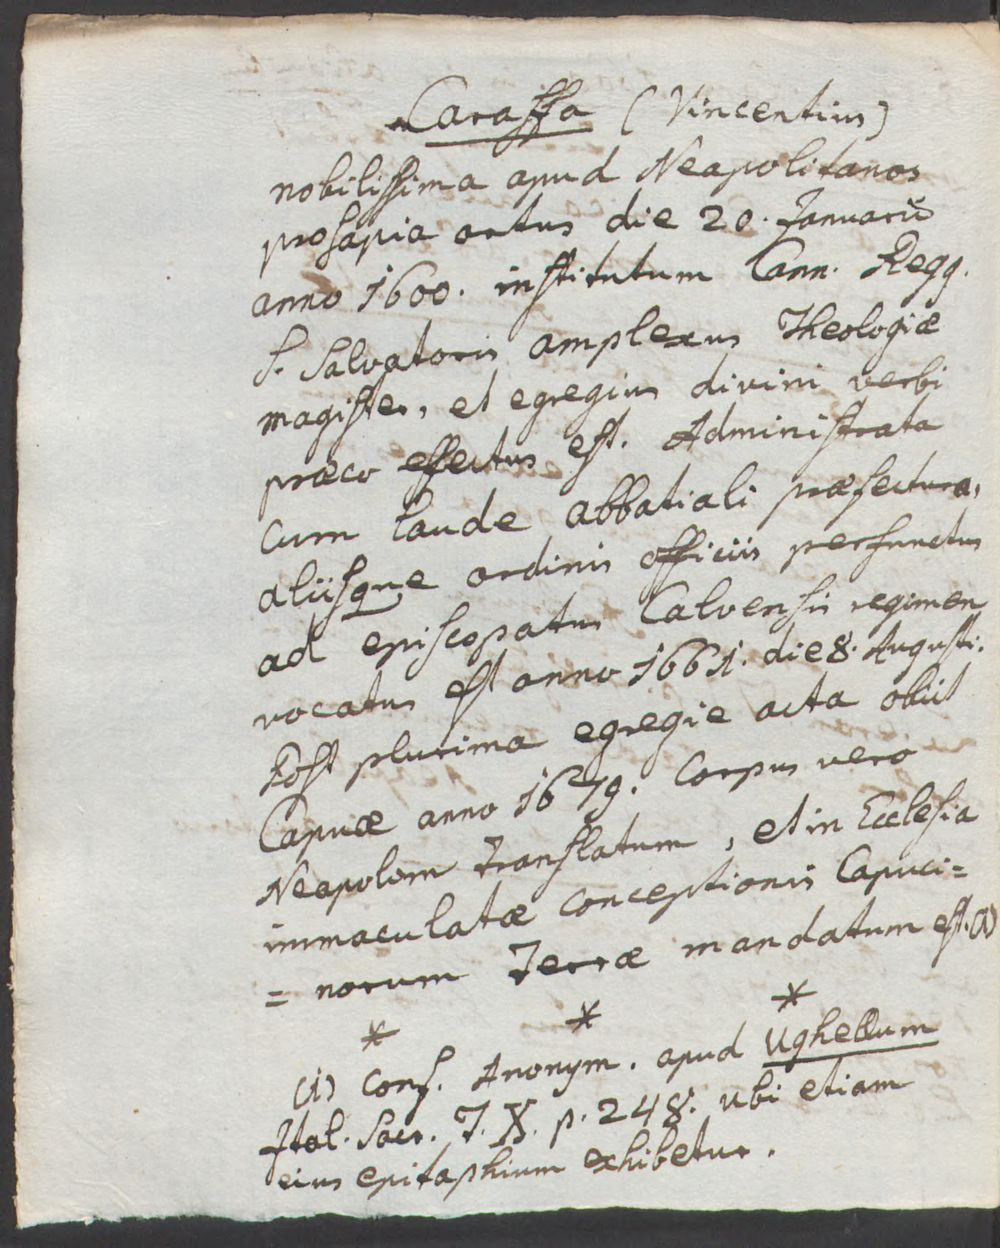 Caraffa (Vincentius)
nobilissima apud Neapolitanos
prosapia ortus die 20. Januarii
anno 1600. institutum Cann. Regg.
S. Salvatoris amplexus Theologiæ
magister, et egregius divini verbi
præco effectus est. Administrata
cum laude abbatiali præfectura,
aliisque ordinis officiis perfunctus
ad episcopatus Calvensis regimen
vocatus est anno 1661. die 8. Augusti.
Post plurima egregie acta obiit
Capuæ anno 1679. Corpus vero
Neapolim translatum, et in Ecclesia
immaculatæ conceptionis Capuci=
=norum Terræ mandatum est. (1)
* * *
(1) Conf. Anonym. apud Ughellum
Ital. Sacr. T. X. p. 248. ubi etiam
eius epitaphium exhibetur.